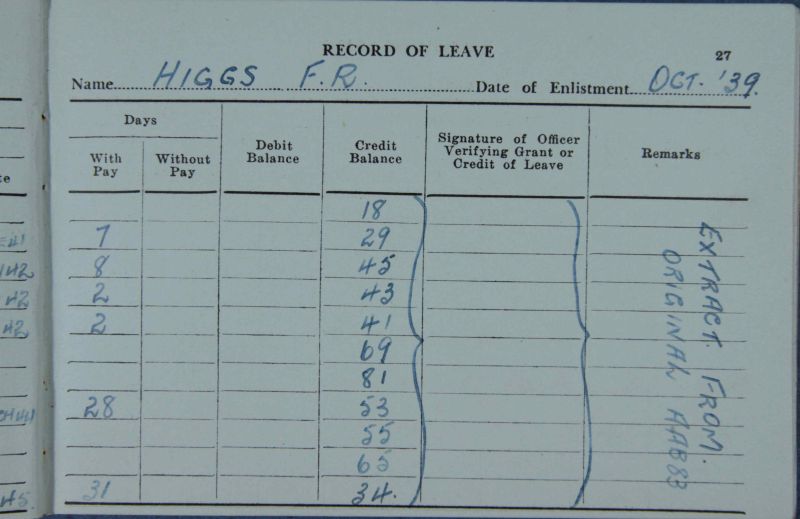 RECORD OF LEAVE
27
Name HIGGS F.R. Date of Enlistment OCT. '39.
Days
With Pay
Without Pay
Debit Balance
Credit Balance
Signature of Officer Verifying Grant or Credit of Leave
Remarks
18
7 29
8 45
2 43
2 41
69
81
28 53
55
65
31 34.
EXTRACT. FROM.
ORIGINAL AAB83
41
42
42
42
45